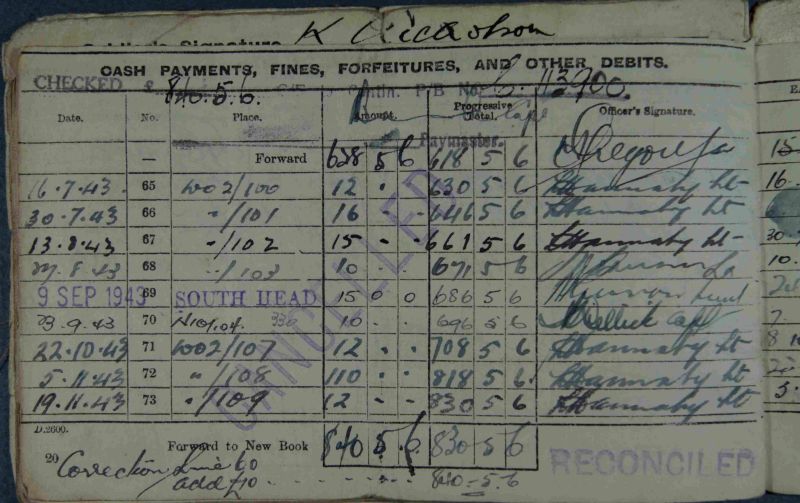 Soldier's Signature K Nickolson
CASH PAYMENTS, FINES, FORFEITURES, AND OTHER DEBITS.
CHECKED £ 840.5.6. Contin. P/B No. B. 113900.
Date. No. Place. Amount. Progressive Total. Officer's Signature.
Capt
Paymaster.
— Forward 628 5 6 618 5 6
16.7.43 65 W02/100 12 . . 630 5 6 Hannaby Lt
30.7.43 66 "/101 16 - . 646 5 6 Hannaby Lt
13.8.43 67 "/102 15 - - 661 5 6 Hannaby Lt
27.8.43 68 "/103 10 - - 671 5 6
9 SEP 1943 69 SOUTH HEAD 15 0 0 686 5 6
23.9.43 70 10 . - 696 5 6 Capt
22.10.43 71 W02/107 12 . . 708 5 6 Hannaby Lt
5.11.43 72 "/108 110 . . 818 5 6 Hannaby Lt
19.11.43 73 "/109 12 - . 830 5 6 Hannaby Lt
CANCELLED
D.2600.
Forward to New Book 840 5 6 830 5 6
20 Correction Line 60
add £10 - - - - - - 840-5.6
RECONCILED